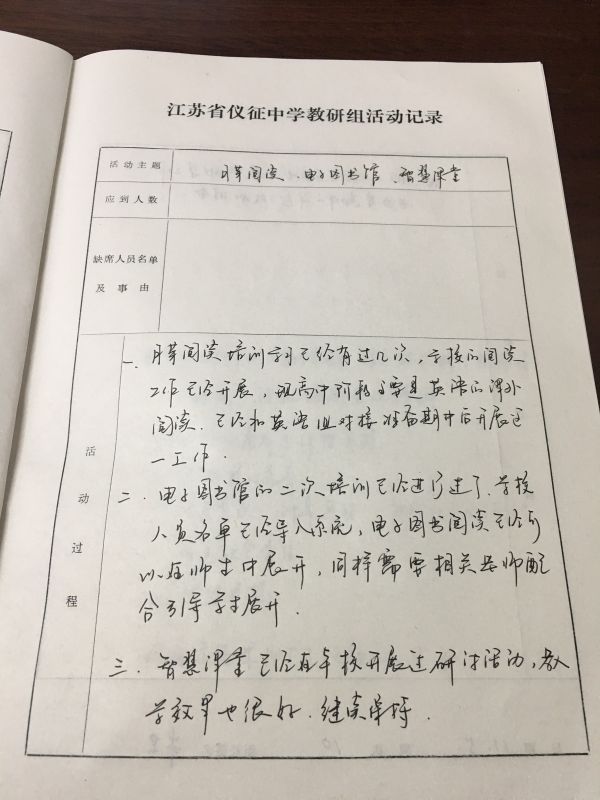 江苏省仪征中学教研组活动记录
活动主题 菁阅读、电子图书馆、智慧课堂
应到人数
缺席人员名单
及事由
活动过程
一、菁阅读培训学习已经有过几次,学校的阅读
工作已经开展,现高中阶段主要是英语的课外
阅读.已经和英语组对接准备期中后开展这
一工作.
二、电子图书馆的二次培训已经进行过了.学校
人员名单已经导入系统,电子图书阅读已经可
以在师生中展开,同样需要相关老师配
合引导学生展开.
三、智慧课堂已经在本校开展过研讨活动,教
学效果也很好.继续保持.